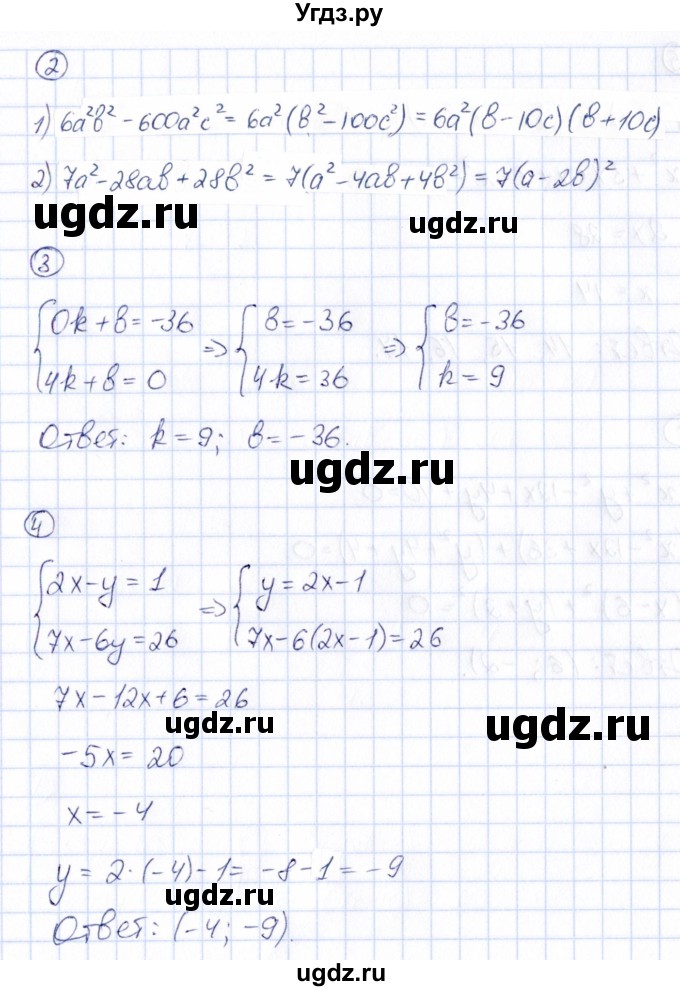 Угдз.ру
2
1) 6a²b² - 600a²c² = 6a²(b² - 100c²) = 6a²(b - 10c)(b + 10c)
2) 7a² - 28ab + 28b² = 7(a² - 4ab + 4b²) = 7(a - 2b)²
ugdz.ru ugdz.ru
3
{0k + b = -36 => {b = -36 => {b = -36
{4k + b = 0 {4·k = 36 {k = 9
Ответ: k = 9; b = -36.
ugdz.ru
4
{2x - y = 1 => {y = 2x - 1
{7x - 6y = 26 {7x - 6(2x - 1) = 26
7x - 12x + 6 = 26
ugdz.ru ugdz.ru
-5x = 20
x = -4
y = 2·(-4) - 1 = -8 - 1 = -9
ugdz.ru
Ответ: (-4; -9).
ugdz.ru